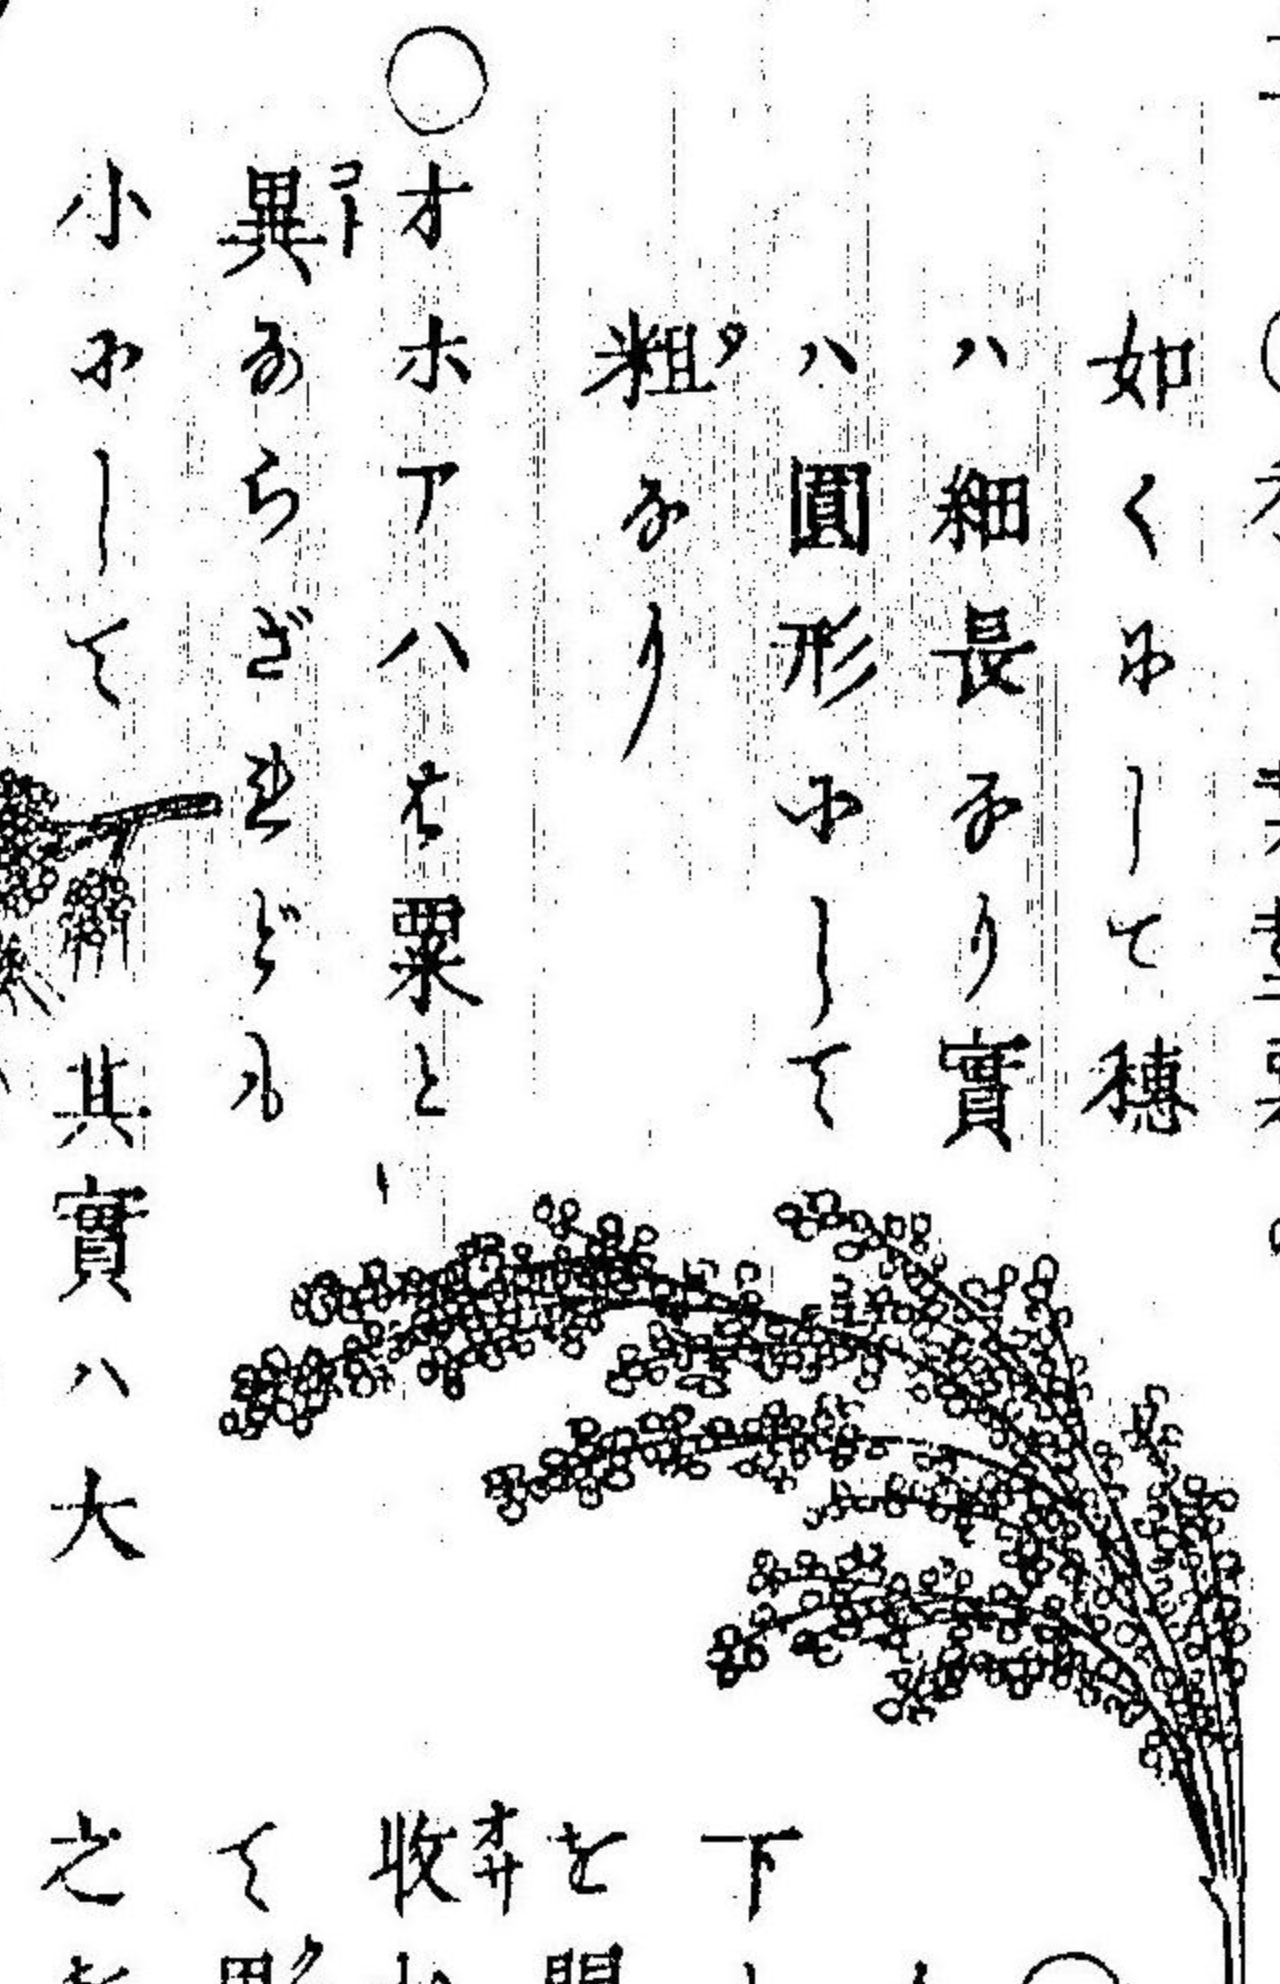 如くにして穂
ハ細長なり實
ハ圓形にして
粗なり
○オホアハは粟と
異ならざれども
小にして
其實ハ大
下
を
收
て
之